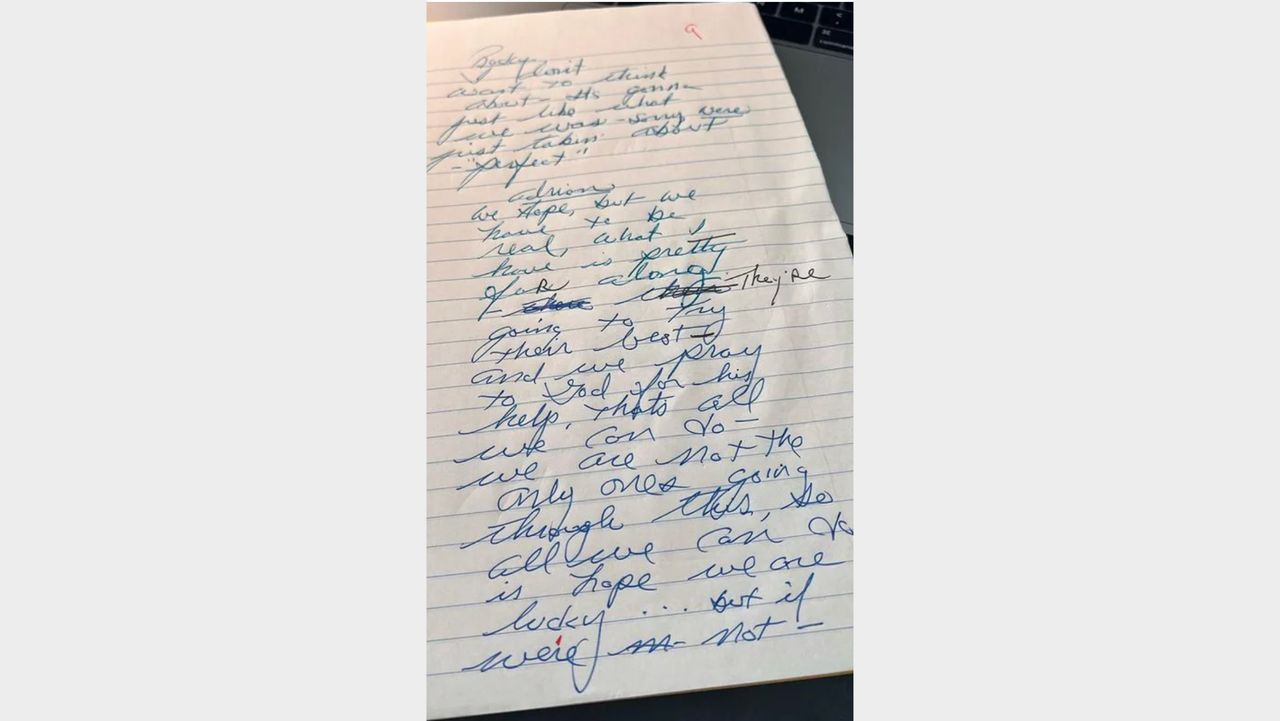 9
Rocky
I don't
want to think
about - its gonna
just like what
we was - sorry were
just takin about
- "perfect"
adrian
we hope, but we
have to be
real, what I
have is pretty
far along
- They're
going to try
their best -
and we pray
to God for his
help, thats all
we can do -
we are not the
only ones going
through this, so
all we can do
is hope we are
lucky ... but if
we're not -
command